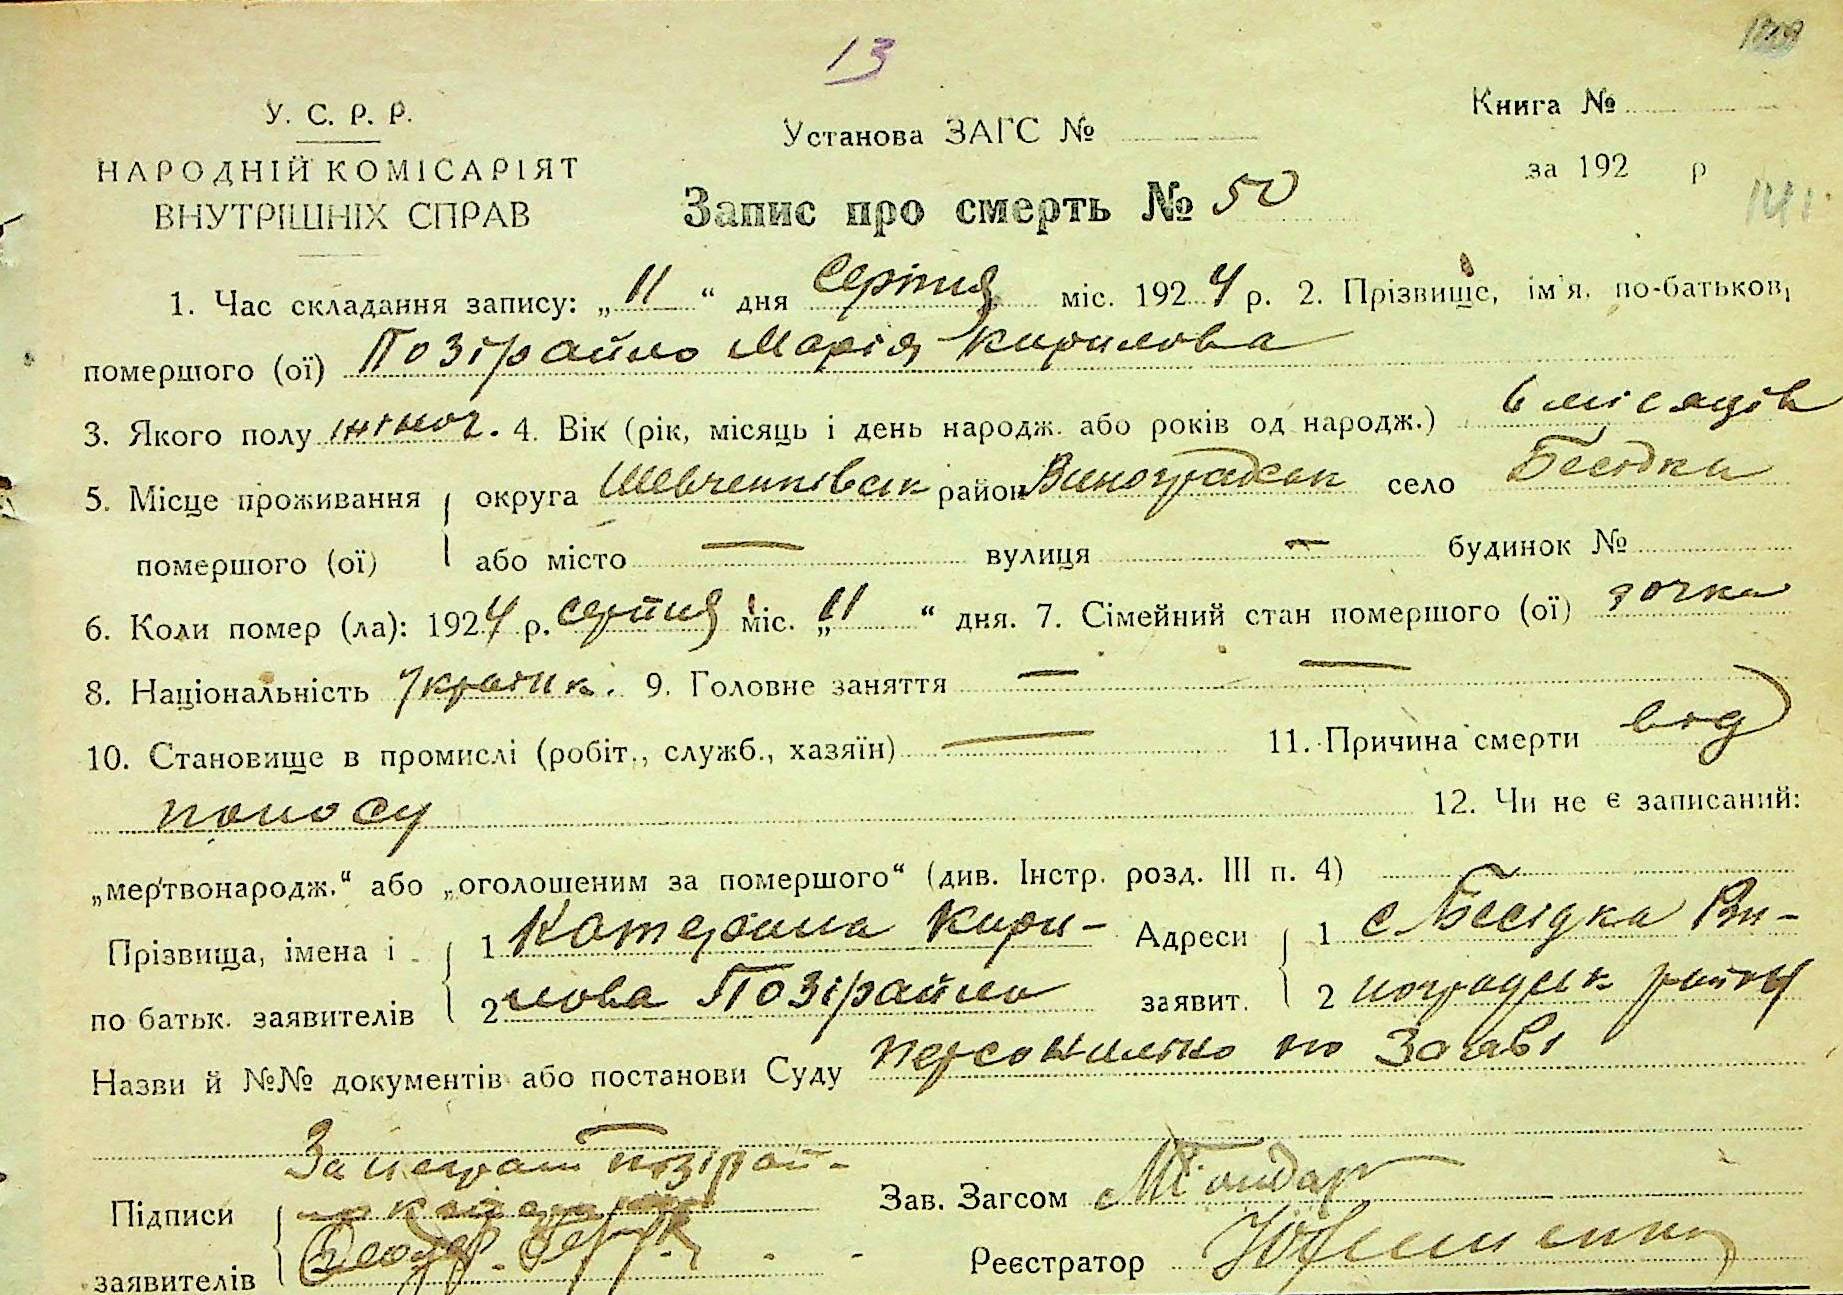 13
У. С. Р. Р.
НАРОДНІЙ КОМІСАРІЯТ
ВНУТРІШНІХ СПРАВ
Установа ЗАГС №
Запис про смерть № 50
Книга №
за 192 р
141
1. Час складання запису: „11“ дня Серпня міс. 1924 р. 2. Прізвище, ім'я, по-батькові
помершого (ої) Позірайло Марія Кирилова
3. Якого полу жіноч. 4. Вік (рік, місяць і день народж. або років од народж.) 6 місяців
5. Місце проживання округа Шевченківськ район Виноградськ село Бесідка
помершого (ої) або місто — вулиця — будинок №
6. Коли помер (ла): 1924 р. серпня міс. „11“ дня. 7. Сімейний стан помершого (ої) дочка
8. Національність Україн. 9. Головне заняття — —
10. Становище в промислі (робіт., служб., хазяїн) — 11. Причина смерти від
поносу 12. Чи не є записаний:
„мертвонародж.“ або „оголошеним за помершого“ (див. Інстр. розд. III п. 4)
Прізвища, імена і 1 Катерина Кири- Адреси 1 с Бесідка Ви-
по батьк. заявителів 2 лова Позірайло заявит. 2 ноградськ район
Назви й №№ документів або постанови Суду персонально по Заяві
За неграм Позірай-
Підписи Зав. Загсом
заявителів Реєстратор